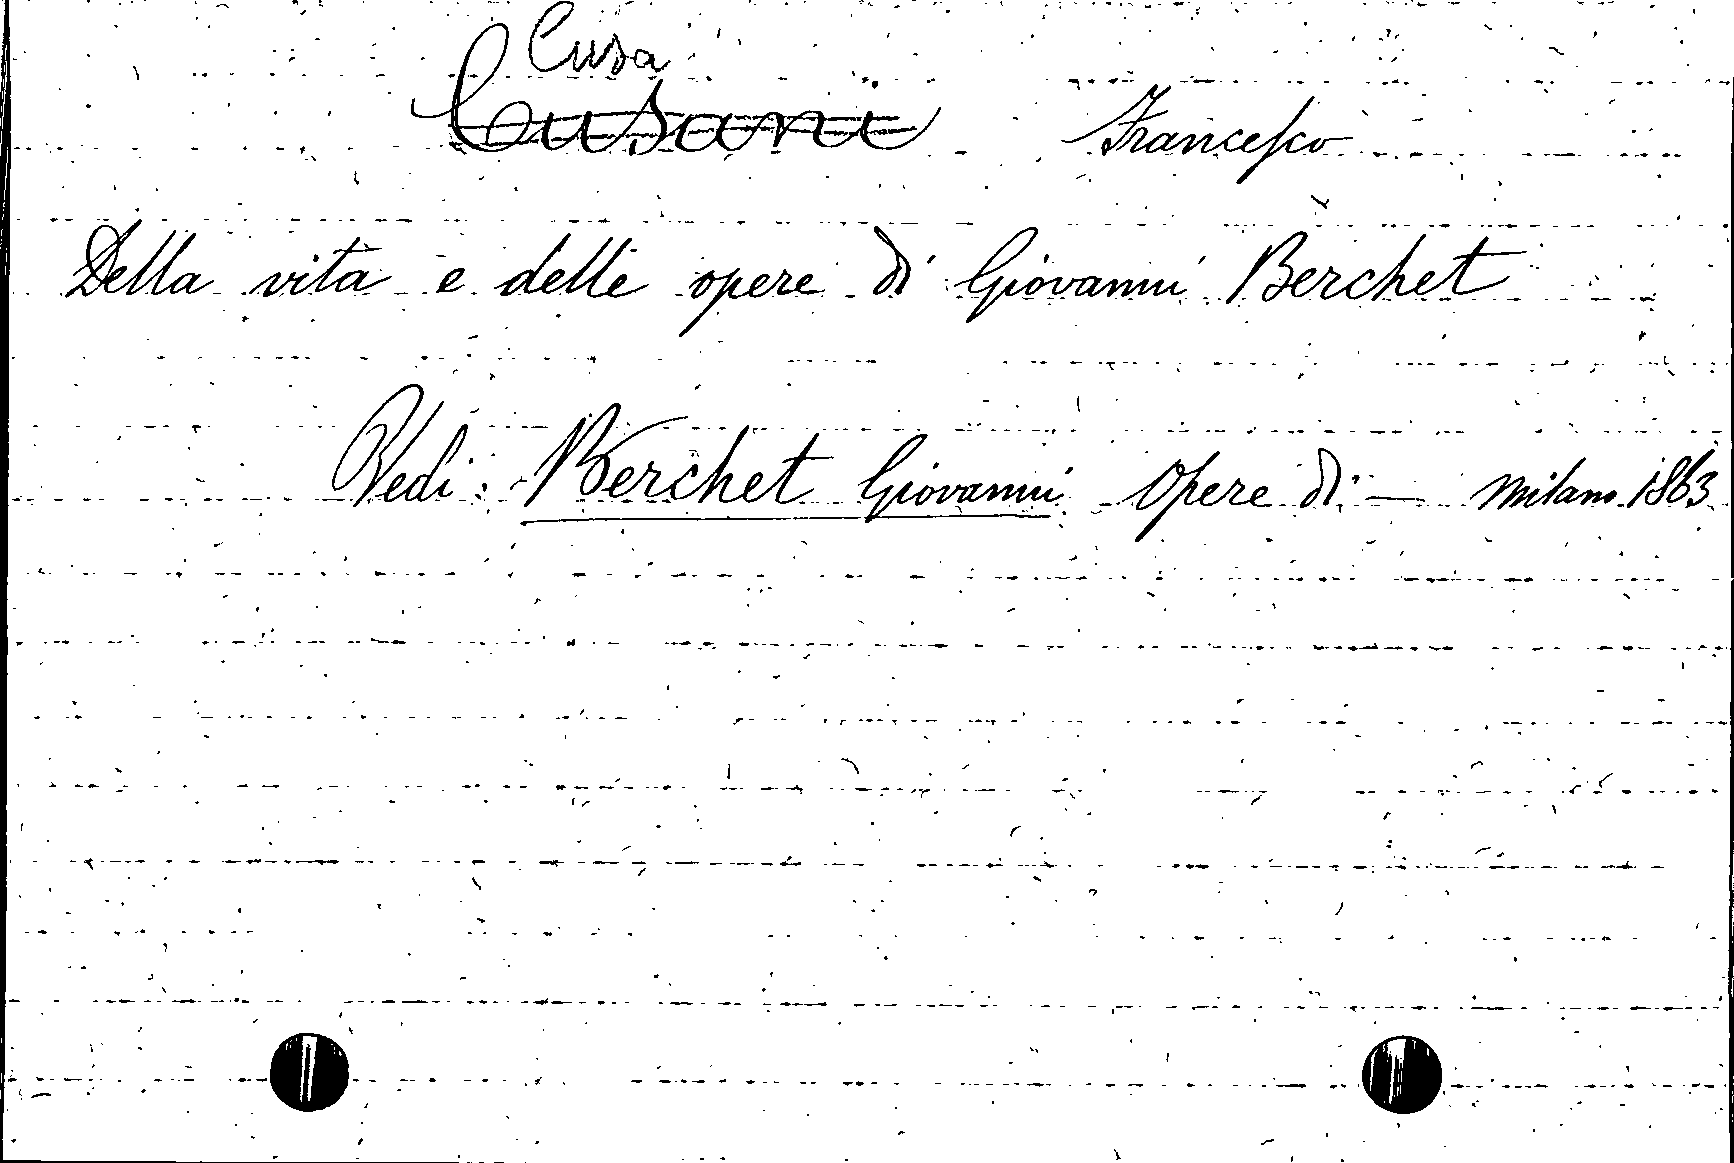 Cusa
Cusani Francesco
Della vita e delle opere di Giovanni Berchet
Vedi: Berchet Giovanni Opere di — Milano 1863